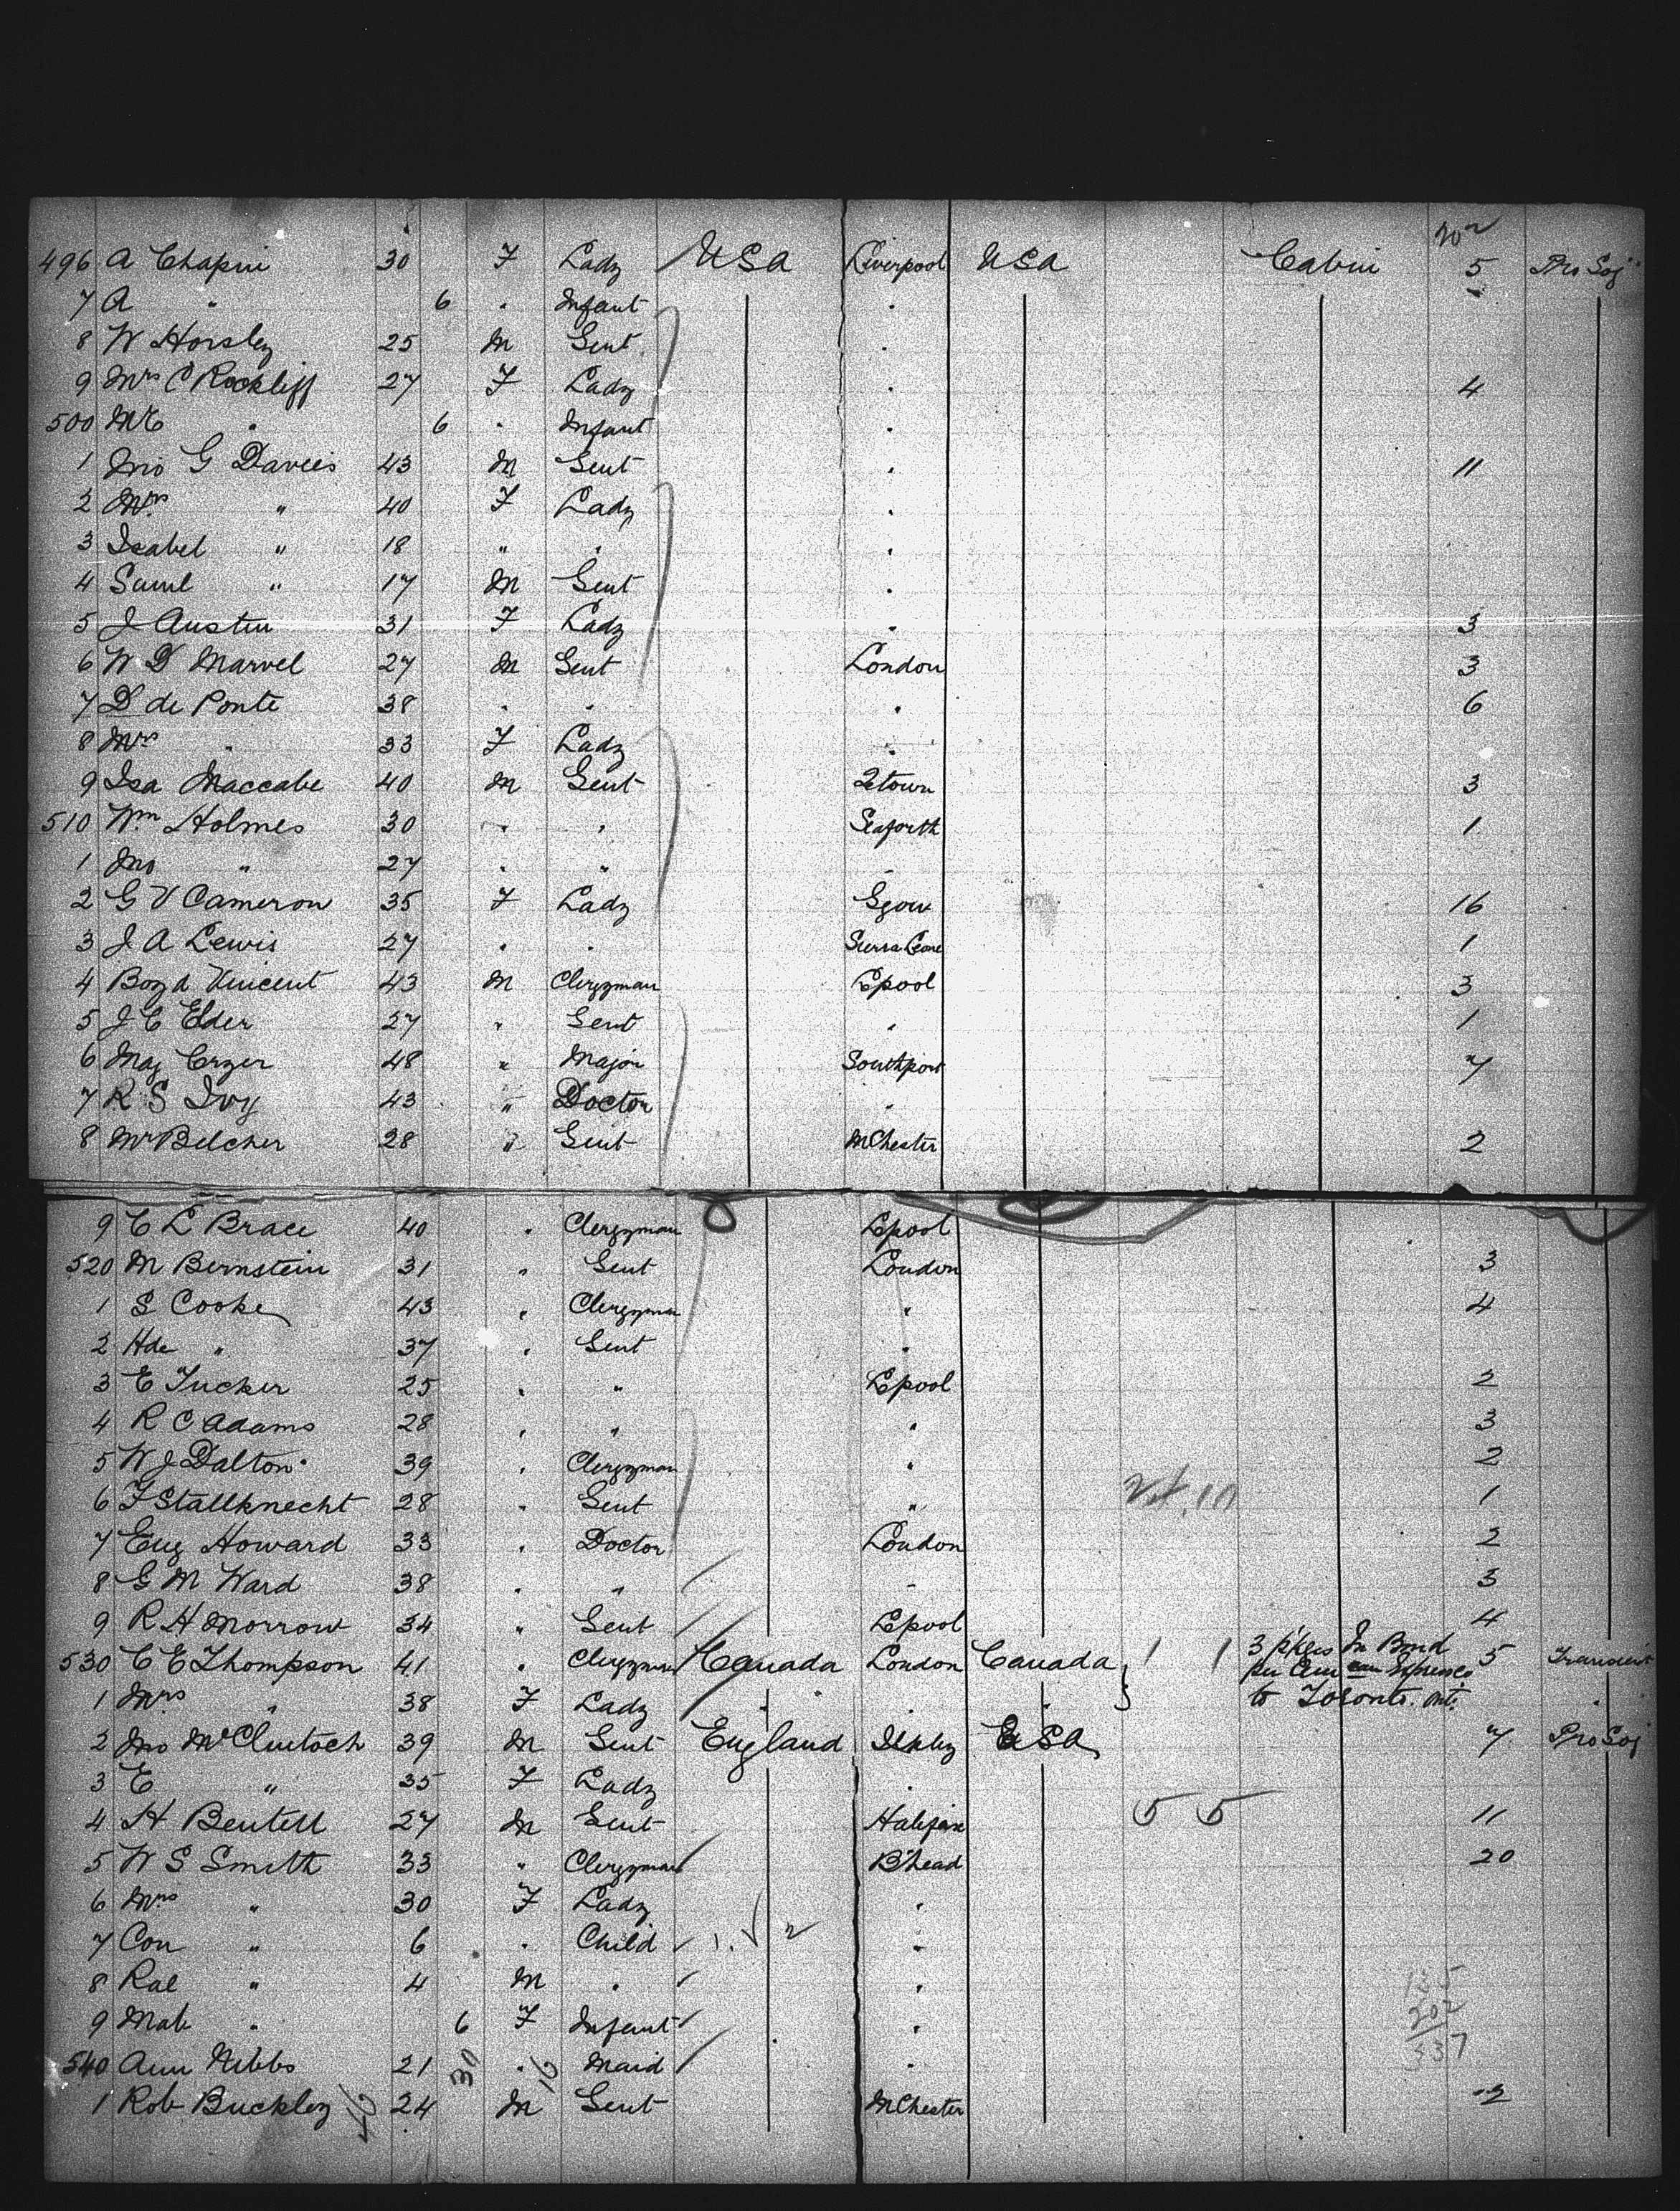 202
496 A Chapin 30 F Lady USA Liverpool USA Cabin 5 Pro Soj
7 A " 6 " Infant "
8 W Horsley 25 M Gent "
9 Mrs C Rockliff 27 F Lady " 4
500 M E " 6 " Infant "
1 Jno G Davies 43 M Gent " 11
2 Mrs " 40 F Lady "
3 Isabel " 18 " " "
4 Saml " 17 M Gent "
5 J Austin 31 F Lady " 3
6 W D Marvel 27 M Gent London 3
7 D de Ponte 38 " " " 6
8 Mrs " 33 F Lady "
9 Isa Maccabe 40 M Gent Qtown 3
510 Wm Holmes 30 " " Seaforth 1
1 Jno " 27 " " "
2 G V Cameron 35 F Lady Sgow 16
3 J A Lewis 27 " " Sierra Leone 1
4 Boyd Vincent 43 M Clergyman Lpool 3
5 J C Elder 27 " Gent " 1
6 Maj 48 " Major Southport 7
7 R S Ivy 43 " Doctor "
8 Mr Belcher 28 " Gent MChester 2
9 C L Brace 40 " Clergyman Lpool
520 M Bernstein 31 " Gent London 3
1 S Cooke 43 " Clergyman " 4
2 Hde " 37 " Gent "
3 E Tucker 25 " " Lpool 2
4 R C Adams 28 " " " 3
5 W J Dalton 39 " Clergyman " 2
6 F Stallknecht 28 " Gent " 1
7 Eug Howard 33 " Doctor London 2
8 G M Ward 38 " " " 3
9 R H Morrow 34 " Gent Lpool 4
530 C E Thompson 41 " Clergyman Canada London Canada 1 1 3 pkges In Bond 5 Transient
per Express
to Toronto. Ont.
1 Mrs " 38 F Lady " " " "
2 Jno McClintoch 39 M Gent England Ilkley USA 7 Pro Soj
3 E " 35 F Lady "
4 H Bentell 27 M Gent Halifax 5 5 11
5 W S Smith 33 " Clergyman B'head 20
6 Mrs " 30 F Lady "
7 Con " 6 " Child "
8 Rae " 4 M " "
9 Mab " 6 F Infant "
540 Ann Nibbs 21 " Maid "
1 Rob Buckley 24 M Gent MChester 2
135
202
337
30
16
46